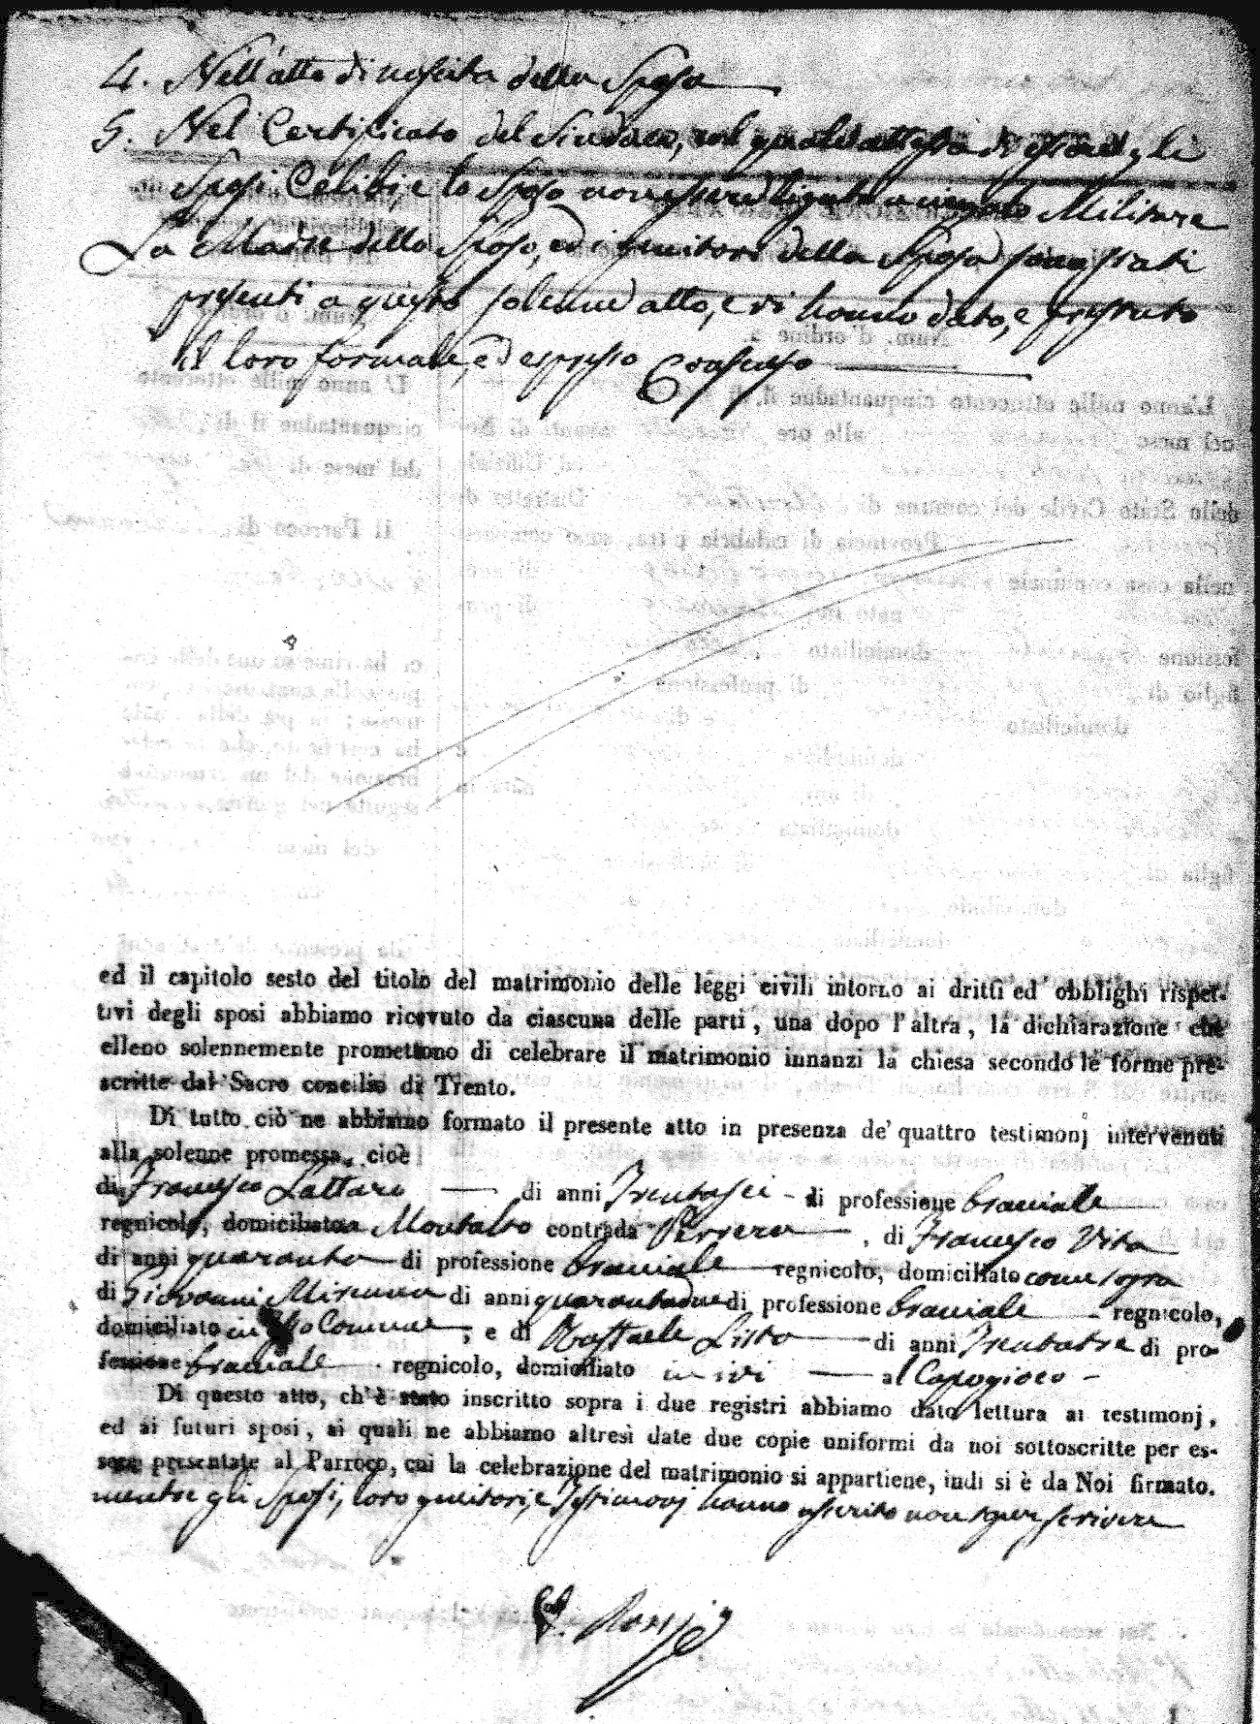 4. Nell'atto di nascita della Sposa
5. Nel Certificato del Sindaco, col quale attesta di essere gli
Sposi Celibi, e lo Sposo non essere ligato a vincolo Militare
La Madre dello Sposo, ed i genitori della Sposa sono stati
presenti a questo solenne atto, e vi hanno dato, e prestato
il loro formale, ed espresso Consenso
ed il capitolo sesto del titolo del matrimonio delle leggi civili intorno ai dritti ed obblighi rispet-
tivi degli sposi abbiamo ricevuto da ciascuna delle parti, una dopo l'altra, la dichiarazione che
elleno solennemente promettono di celebrare il matrimonio innanzi la chiesa secondo le forme pre-
scritte dal Sacro concilio di Trento.
Di tutto ciò ne abbiamo formato il presente atto in presenza de' quattro testimonj intervenuti
alla solenne promessa, cioè
di Francesco Lattaro di anni Trentasei di professione bracciale
regnicolo, domiciliato in Montalto contrada Perrero, di Francesco Vita
di anni quaranta di professione bracciale regnicolo, domiciliato come sopra
di Giovanni di anni quarantadue di professione bracciale regnicolo,
domiciliato in Comune, e di Raffaele Listo di anni Trentatre di pro-
fessione bracciale regnicolo, domiciliato in ivi al
Di questo atto, ch'è stato inscritto sopra i due registri abbiamo dato lettura ai testimonj,
ed ai futuri sposi, ai quali ne abbiamo altresì date due copie uniformi da noi sottoscritte per es-
sere presentate al Parroco, cui la celebrazione del matrimonio si appartiene, indi si è da Noi firmato.
mentre gli Sposi, loro genitori, e Testimonj hanno asserito non saper scrivere